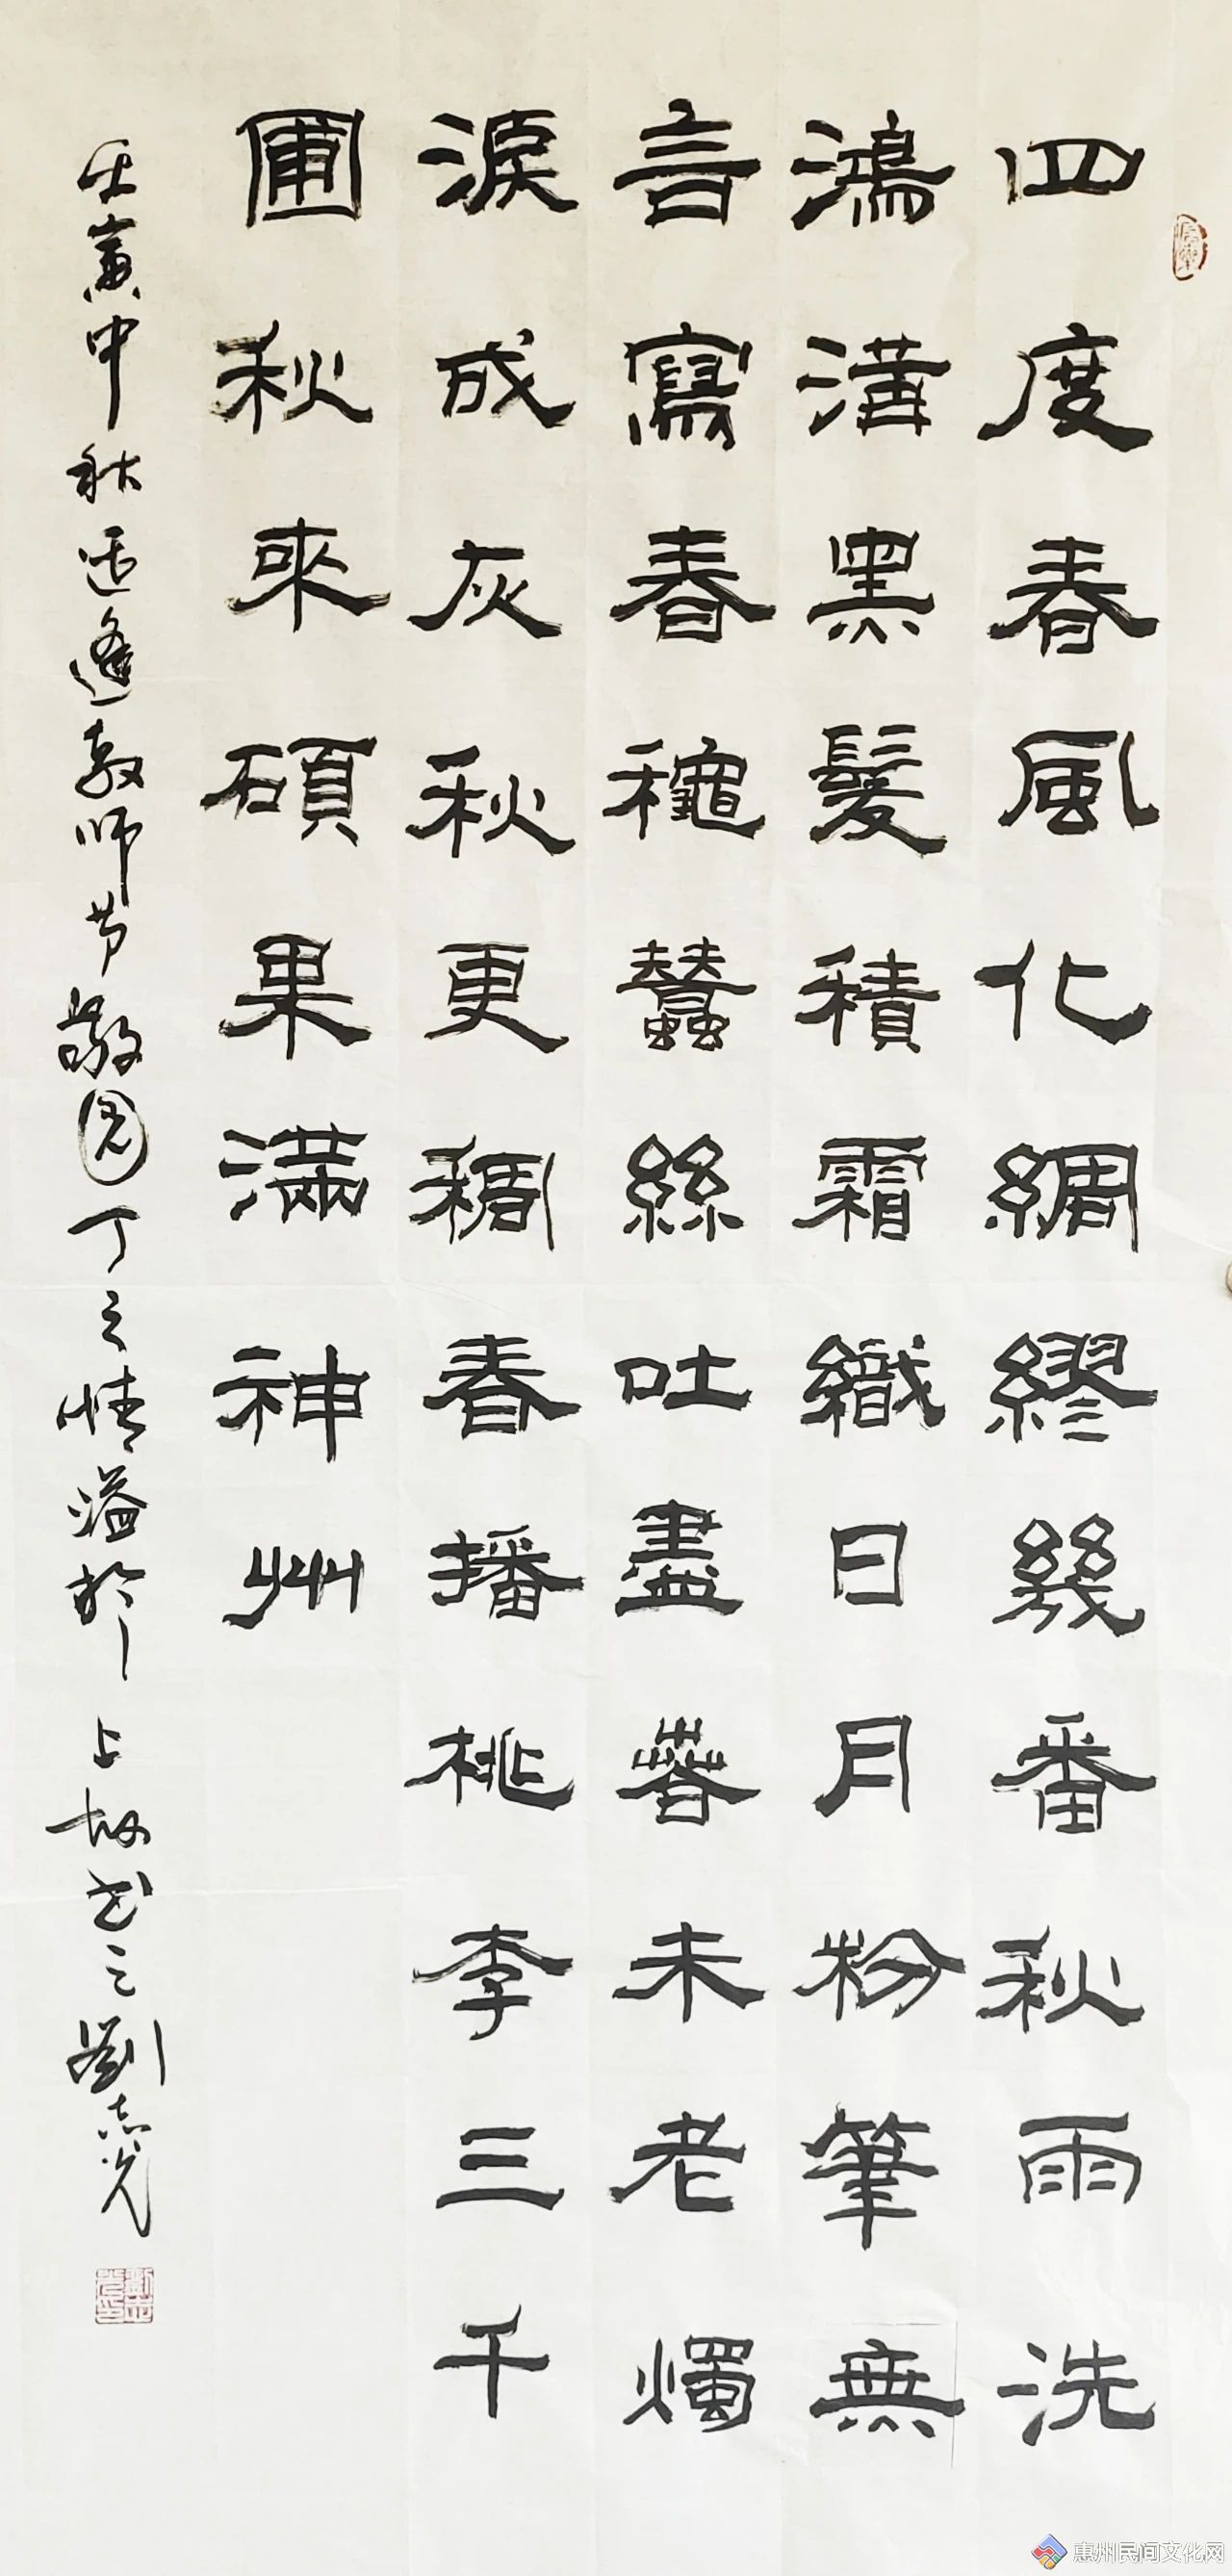 四度春風化綢繆幾番秋雨洗
鴻溝黑髮積霜織日月粉筆無
言寫春穐蠶絲吐盡萅未老燭
淚成灰秋更稠春播桃李三千
圃秋來碩果滿神州
壬寅中秋适逢教师节敬園丁之情溢於上故书之劉志光
惠州民间文化网